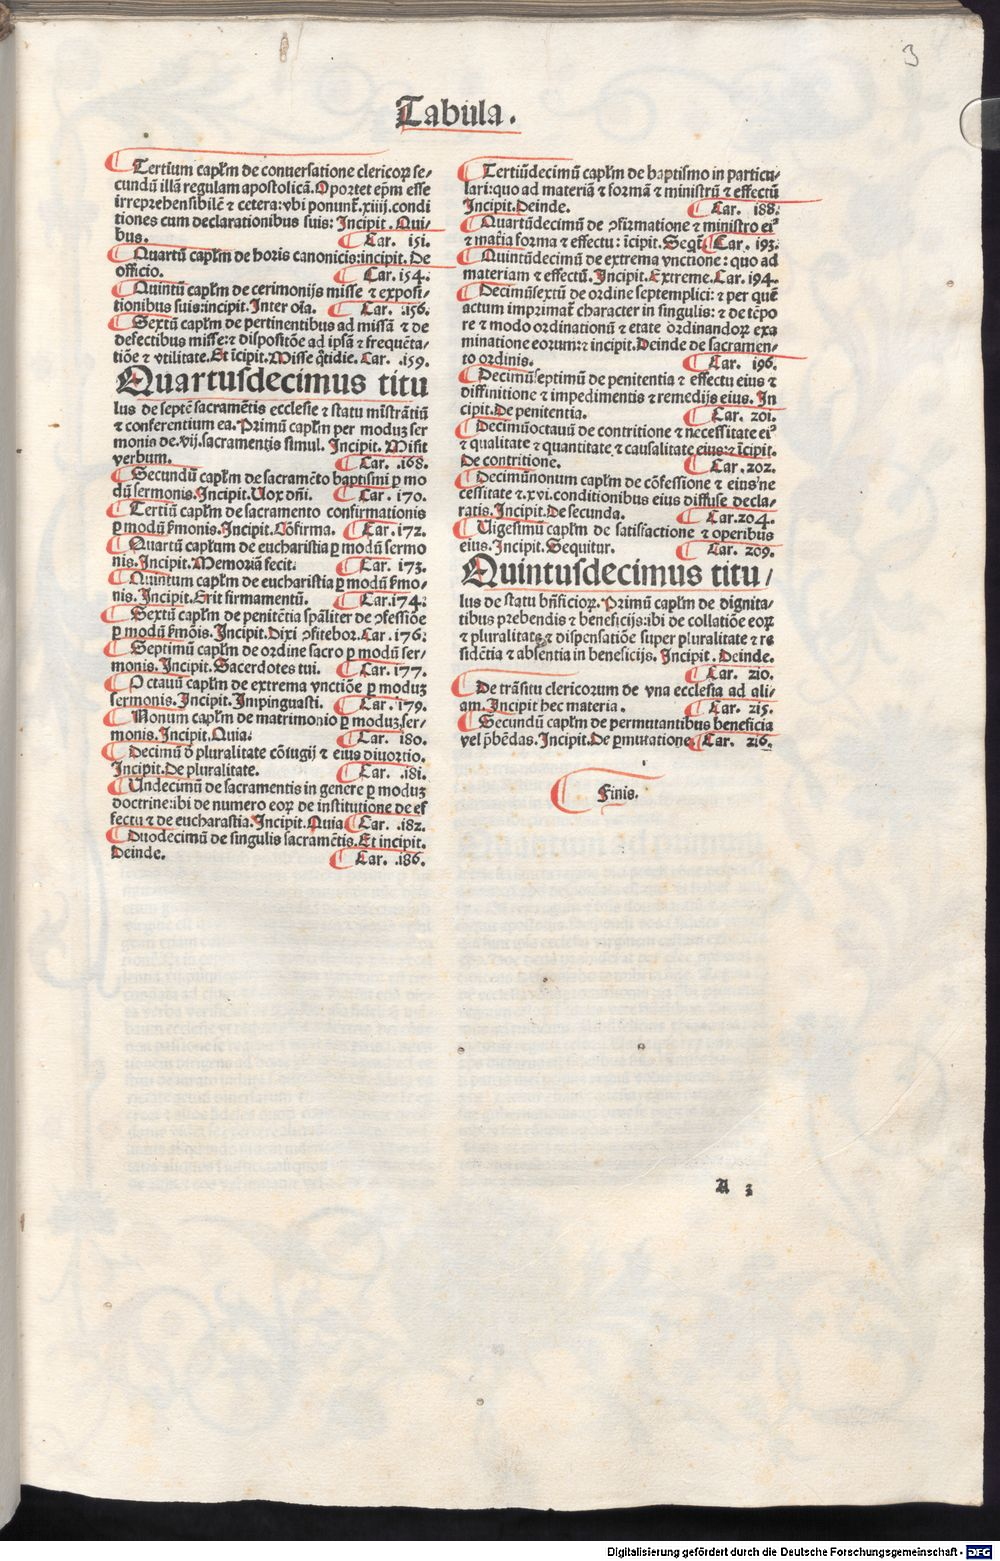 3
Tabula.
Tertium capłm de conuersatione clericoꝝ se-
cundū illā regulam apostolicā. Oportet epm̄ esse
irreprehensibilē ⁊ cetera: vbi ponunt̄.xiiij.condi
tiones cum declarationibus suis: Incipit. Qui-
bus. Car. 151.
Quartū capłm de horis canonicis:incipit. De
officio. Car. 154.
Quintū capłm de cerimonijs misse ⁊ exposi-
tionibus suis:incipit. Inter oīa. Car. 156.
Sextū capłm de pertinentibus ad missā ⁊ de
defectibus misse:⁊ dispositōe ad ipsā ⁊ frequēta-
tiōe ⁊ vtilitate. Et īcipit. Misse q̄tidie. Car. 159.
Quartusdecimus titu
lus de septē sacramētis ecclesie ⁊ statu mīstrātiū
⁊ conferentium ea. Primū capłm per moduꝫ ser
monis de.vij.sacramentis simul. Incipit. Misit
verbum. Car. 168.
Secundū capłm de sacramēto baptismi ꝑ mo
dū sermonis. Incipit. Uox dn̄i. Car. 170.
Tertiū capłm de sacramento confirmationis
ꝑ modū s̄monis. Incipit. Cōfirma. Car. 172.
Quartū capłum de eucharistia ꝑ modū sermo
nis. Incipit. Memoriā fecit. Car. 173.
Quintum capłm de eucharistia ꝑ modū s̄mo-
nis. Incipit. Erit firmamentū. Car. 174.
Sextū capłm de penitētia spāliter de ꝯfessiōe
ꝑ modū s̄mōis. Incipit. Dixi ꝯfitebor. Car. 176.
Septimū capłm de ordine sacro ꝑ modū ser-
monis. Incipit. Sacerdotes tui. Car. 177.
Octauū capłm de extrema vnctiōe ꝑ moduꝫ
sermonis. Incipit. Impinguasti. Car. 179.
Nonum capłm de matrimonio ꝑ moduꝫ ser-
monis. Incipit. Quia. Car. 180.
Decimū ꝺ̄ pluralitate cōiugij ⁊ eius diuortio.
Incipit. De pluralitate. Car. 181.
Undecimū de sacramentis in genere ꝑ moduꝫ
doctrine:ibi de numero eoꝝ de institutione de ef
fectu ⁊ de eucharastia. Incipit. Quia Car. 182.
Duodecimū de singulis sacramētis. Et incipit.
Deinde. Car. 186.
Tertiūdecimū capłm de baptismo in particu-
lari:quo ad materiā ⁊ formā ⁊ ministrū ⁊ effectū
Incipit. Deinde. Car. 188.
Quartūdecimū de ꝯfirmatione ⁊ ministro eiꝰ
⁊ mat̄ia forma ⁊ effectu: īcipit. Seqt̄. Car. 193.
Quintūdecimū de extrema vnctione: quo ad
materiam ⁊ effectū. Incipit. Extreme. Car. 194.
Decimūsextū de ordine septemplici: ⁊ per quē
actum imprimat̄ character in singulis: ⁊ de tēpo
re ⁊ modo ordinationū ⁊ etate ordinandoꝝ exa
minatione eorum:⁊ incipit. Deinde de sacramen-
to ordinis. Car. 196.
Decimūseptimū de penitentia ⁊ effectu eius ⁊
diffinitione ⁊ impedimentis ⁊ remedijs eius. In
cipit. De penitentia. Car. 201.
Decimūoctauū de contritione ⁊ necessitate eiꝰ
⁊ qualitate ⁊ quantitate ⁊ causalitate eius:⁊ īcipit.
De contritione. Car. 202.
Decimūnonum capłm de cōfessione ⁊ eius ne
cessitate ⁊.xvi.conditionibus eius diffuse decla-
ratis. Incipit. De secunda. Car. 204.
Uigesimū capłm de satisfactione ⁊ operibus
eius. Incipit. Sequitur. Car. 209.
Quintusdecimus titu/
lus de statu bn̄ficioꝝ. Primū capłm de dignita-
tibus prebendis ⁊ beneficijs:ibi de collatiōe eoꝝ
⁊ pluralitate ⁊ dispensatiōe super pluralitate ⁊ re
sidētia ⁊ absentia in beneficijs. Incipit. Deinde.
Car. 210.
De trāsitu clericorum de vna ecclesia ad ali-
am. Incipit hec materia. Car. 215.
Secundū capłm de permutantibus beneficia
vel p̄bēdas. Incipit. De ꝑmutatione. Car. 216.
Finis.
A 3
Digitalisierung gefördert durch die Deutsche Forschungsgemeinschaft - DFG